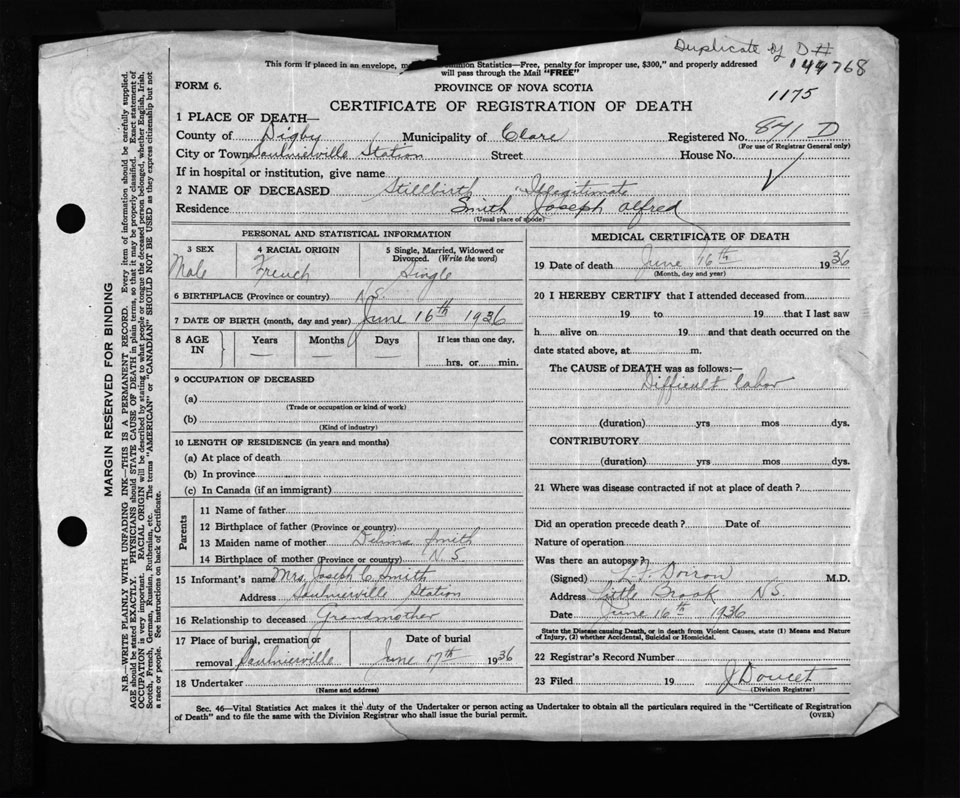 Duplicate of D#
144768
This form if placed in an envelope, Statistics—Free, penalty for improper use, $300," and properly addressed
will pass through the Mail "FREE"
FORM 6.
PROVINCE OF NOVA SCOTIA
1175
CERTIFICATE OF REGISTRATION OF DEATH
1 PLACE OF DEATH—
County of Digby Municipality of Clare Registered No. 871 D
(For use of Registrar General only)
City or Town Saulnierville Station Street House No.
If in hospital or institution, give name
2 NAME OF DECEASED Stillbirth "Illegitimate
Residence Smith Joseph Alfred
(Usual place of abode)
PERSONAL AND STATISTICAL INFORMATION
3 SEX 4 RACIAL ORIGIN 5 Single, Married, Widowed or Divorced. (Write the word)
Male French Single
6 BIRTHPLACE (Province or country) N.S.
7 DATE OF BIRTH (month, day and year) June 16th 1936
8 AGE IN Years Months Days If less than one day,
— — — hrs. or min.
9 OCCUPATION OF DECEASED
(a)
(Trade or occupation or kind of work)
(b)
(Kind of industry)
10 LENGTH OF RESIDENCE (in years and months)
(a) At place of death
(b) In province
(c) In Canada (if an immigrant)
Parents
11 Name of father
12 Birthplace of father (Province or country)
13 Maiden name of mother Smith
14 Birthplace of mother (Province or country) N S
15 Informant's name Mrs. Joseph C Smith
Address Saulnierville Station
16 Relationship to deceased Grandmother
17 Place of burial, cremation or removal Saulnierville
Date of burial June 17th 1936
18 Undertaker
(Name and address)
MEDICAL CERTIFICATE OF DEATH
19 Date of death June 16th 1936
(Month, day and year)
20 I HEREBY CERTIFY that I attended deceased from
19 to 19 that I last saw
h alive on 19 and that death occurred on the
date stated above, at m.
The CAUSE of DEATH was as follows:—
Difficult labor
(duration) yrs mos dys.
CONTRIBUTORY
(duration) yrs mos dys.
21 Where was disease contracted if not at place of death?
Did an operation precede death? Date of
Nature of operation
Was there an autopsy?
(Signed) Doiron M.D.
Address Little Brook N S.
Date June 16th 1936
State the Disease causing Death, or in death from Violent Causes, state (1) Means and Nature
of Injury, (2) whether Accidental, Suicidal or Homicidal.
22 Registrar's Record Number
23 Filed 19 J Doucet
(Division Registrar)
Sec. 46—Vital Statistics Act makes it the duty of the Undertaker or person acting as Undertaker to obtain all the particulars required in the "Certificate of Registration
of Death" and to file the same with the Division Registrar who shall issue the burial permit. (OVER)
MARGIN RESERVED FOR BINDING
N.B.—WRITE PLAINLY WITH UNFADING INK—THIS IS A PERMANENT RECORD. Every item of information should be carefully supplied.
AGE should be stated EXACTLY. PHYSICIANS should STATE CAUSE OF DEATH in plain terms, so that it may be properly classified. Exact statement of
OCCUPATION is very important. RACIAL ORIGIN will be described by stating to what people or tongue the deceased person belonged, whether English, Irish,
Scotch, French, German, Russian, Ruthenian, etc. The terms "AMERICAN" or "CANADIAN" SHOULD NOT BE USED as they express citizenship but not
a race or people. See instructions on back of Certificate.